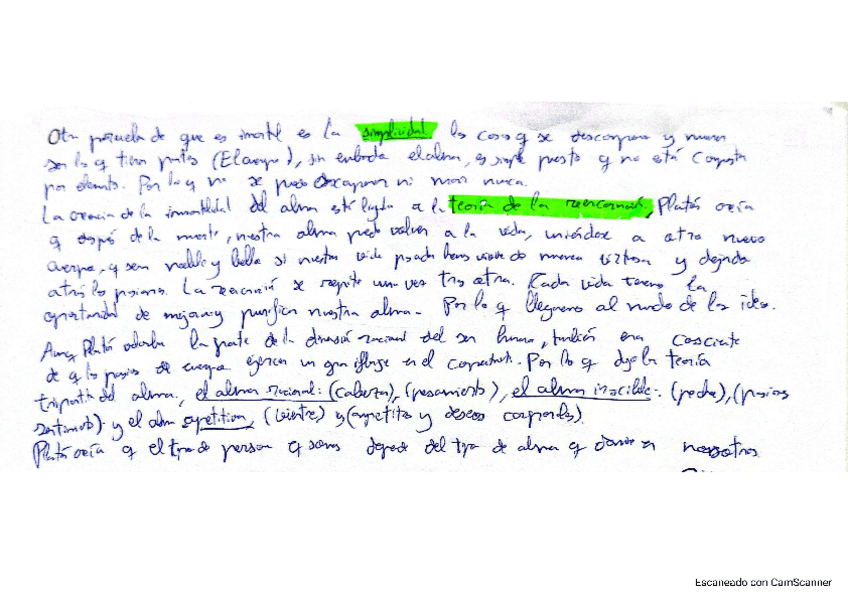 Otra prueba de que es inmortal es la simplicidad las cosas q se descomponen y mueren
son los q tienen partes (El cuerpo), sin embargo el alma, es simple puesto q no está compuesta
por elementos. Por lo q no se puede descomponer ni morir nunca.
La creencia de la inmortalidad del alma está ligada a la teoría de la reencarnación, Platón creía
q después de la muerte, nuestra alma puede volver a la vida, uniéndose a otro nuevo
cuerpo, q sera noble y bello si nuestra vida pasada hemos vivido de manera virtuosa y dejando
atrás las pasiones. La reencarnación se repite una vez tras otra. Cada vida tenemos la
oportunidad de mejorar y purificar nuestra alma. Por lo q llegaremos al mundo de las ideas.
Aunq Platón la parte de la dimensión racional del ser humano, también era consciente
de q las pasiones de cuerpo ejercen un gran influjo en el comportamiento. Por lo q dijo la teoría
tripartita del alma, el alma racional: (cabeza), (pensamiento), el alma irascible: (pecho), (pasiones
sentimientos) y el alma apetitiva, (vientre) y (apetitos y deseos corporales).
Platón creía q el tipo de persona q somos depende del tipo de alma q domine en nosotros
Escaneado con CamScanner